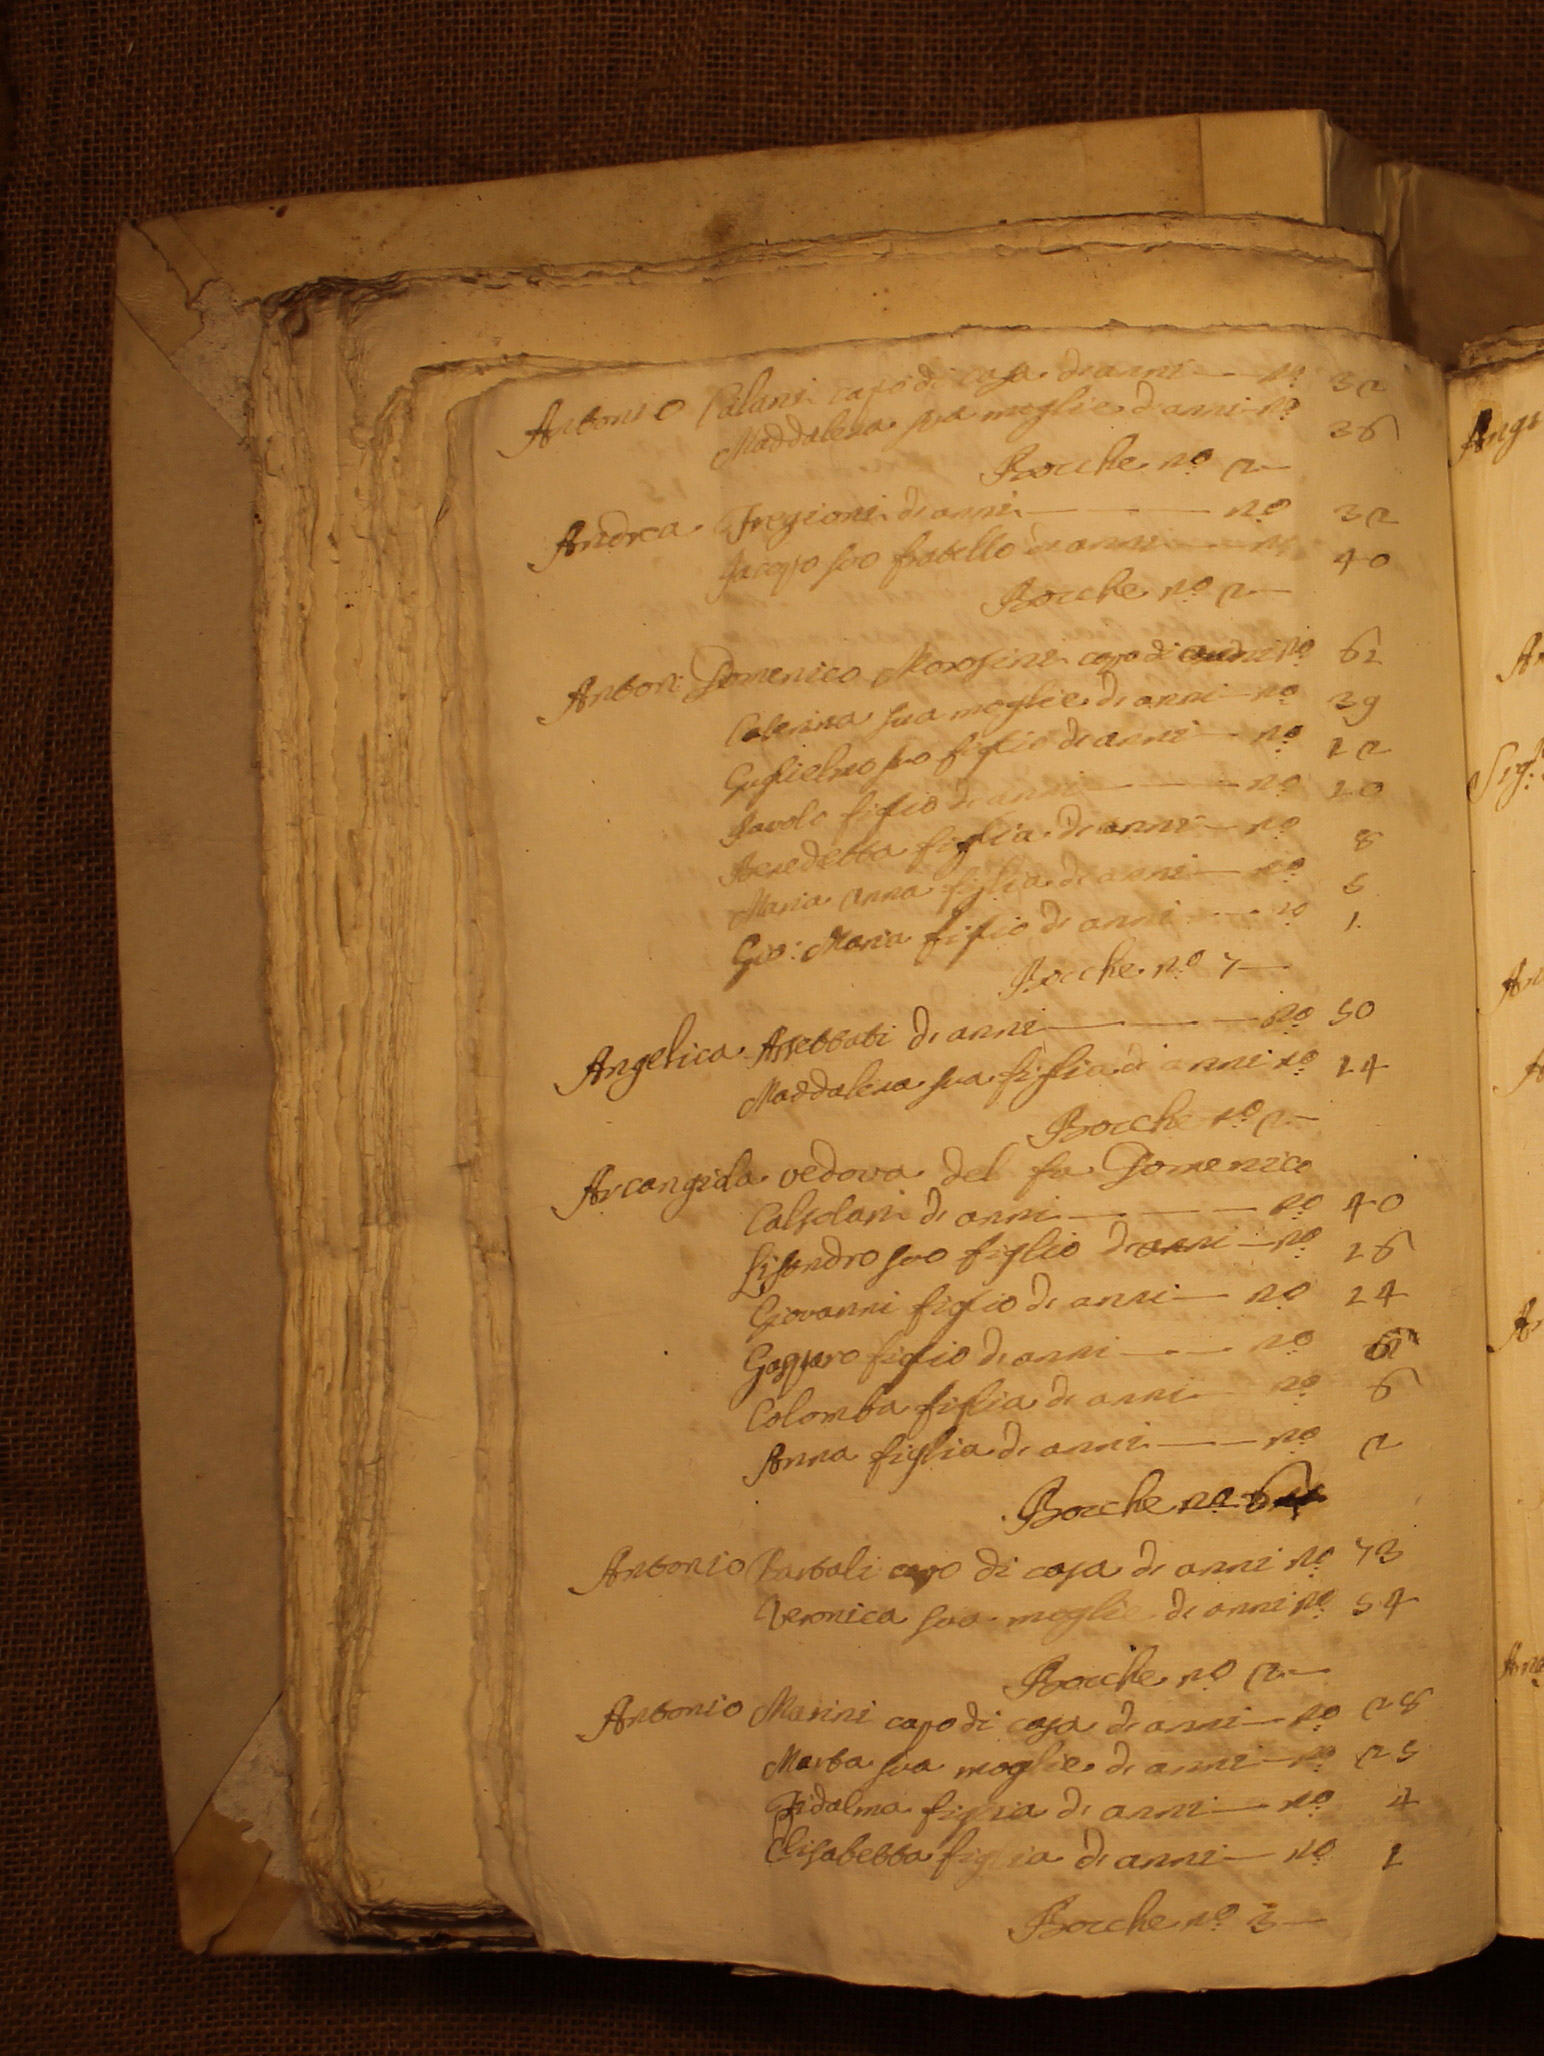 Antonio Calani capo di casa di anni — no 32
Maddalena sua moglie di anni no 36
Bocche no 2 —
Andrea Fregioni di anni — — — no 32
Jacopo suo fratello di anni — no 40
Bocche no 2 —
Anton Domenico Morosini capo di anni no 61
Caterina sua moglie di anni — no 39
Guglielmo suo figlio di anni — no 12
Pavolo figlio di anni — — — no 10
Benedetta figlia di anni — no 8
Maria Anna figlia di anni — no 5
Gio: Maria figlio di anni — — no 1.
Bocche no 7 —
Angelica Assettati di anni — — — no 50
Maddalena sua figlia di anni no 14
Bocche no 2 —
Arcangida vedova del fu Domenico
Calsolari di anni — — — no 40
Lisandro suo figlio di anni — no 16
Giovanni figlio di anni — no 14
Gasparo figlio di anni — — no
Colomba figlia di anni no 6
Anna figlia di anni — — no 2
Bocche no 6
Antonio Bartali capo di casa di anni no 73
Veronica sua moglie di anni no 54
Bocche no 2 —
Antonio Marini capo di casa di anni — no 28
Marta sua moglie di anni — no 25
Fidalma figlia di anni — no 4
Elisabetta figlia di anni — no 1
Bocche no 3 —